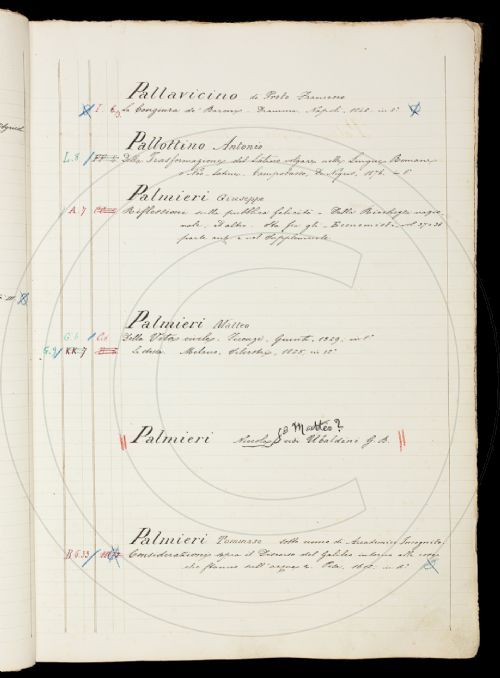 Pallavicino de Proto Francesco
I. 6 La Congiura de' Baroni. Dramma. Napoli. in 8°
Pallottino Antonio
L. 8 Della Trasformazione del Latino volgare nelle Lingue Romane
o Neo-latine. Campobasso, De Nigris, 1876. 8°
Palmieri Giuseppe
A. 7 Riflessioni sulla pubblica felicità - Della Ricchezza nazio
nale, ed altro. Sta fra gli Economisti vol. 37 e 38
parte ant. e nel Supplemento
Palmieri Matteo
G. 6 Della Vita civile. Firenze, Giunti, 1529. in 8°
G. 9 KK. 7 La stessa. Milano, Silvestri, 1825. in 12°
o Matteo?
Palmieri Niccolò vedi Ubaldini G. B.
Palmieri Tommaso sotto nome di Accademico Incognito
B. 6. 33 Considerazioni sopra il Discorso del Galileo intorno alle cose
che stanno sull'acqua &. Pisa. in 4°